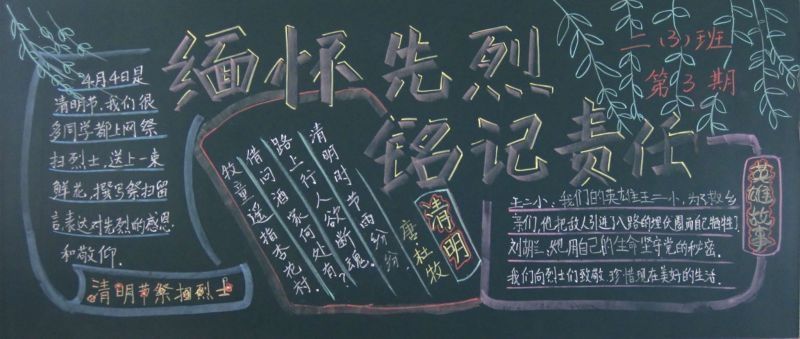 缅怀先烈
铭记责任
二(3)班
第3期
4月4日是
清明节,我们很
多同学都上网祭
扫烈士,送上一束
鲜花,撰写祭扫留
言表达对先烈的感恩
和敬仰.
清明节祭扫烈士
清明
唐 杜牧
清明时节雨纷纷,
路上行人欲断魂.
借问酒家何处有?
牧童遥指杏花村.
英雄故事
王二小,我们的英雄王二小,为了救乡
亲们,他把敌人引进了八路的埋伏圈而自己牺牲了.
刘胡兰,她用自己的生命坚守党的秘密.
我们向烈士们致敬 珍惜现在美好的生活.